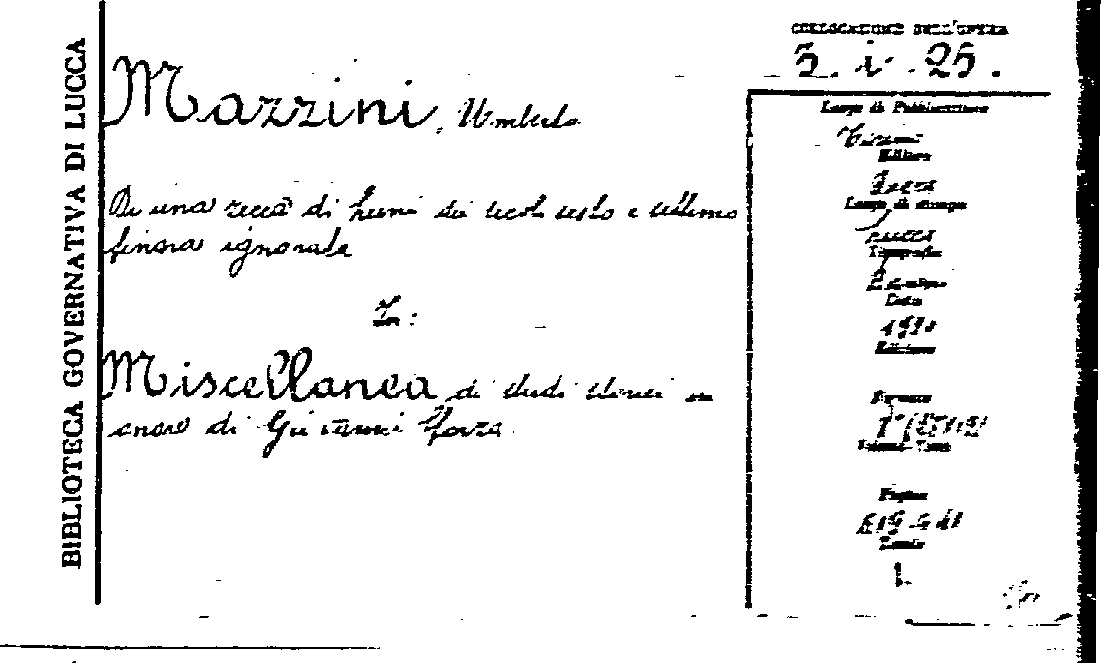 BIBLIOTECA GOVERNATIVA DI LUCCA
COLLOCAZIONE DELL'OPERA
3. i. 25.
Mazzini, Umberto
Di una zecca di Luni dei secoli sesto e settimo
finora ignorata
In:
Miscellanea di studi storici in
onore di Giovanni Sforza
Luogo di Pubblicazione
Torino
Editore
Bocca
Luogo di stampa
Lucca
Tipografia
Data
Edizione
Formato
Volume-Tomo
Pagine
Tavole
1